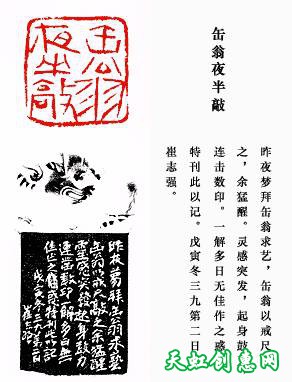 缶翁夜半敲
缶翁夜半敲
昨夜梦拜缶翁求艺，缶翁以戒尺
之，余猛醒。灵感突发，起身鼓
连击数印。一解多日无佳作之感
特刊此以记。戊寅冬三九第二日
崔志强。
昨夜夢拜缶翁求艺
缶翁以戒尺敲之余猛醒
灵感突发起身鼓刀
連击數印一解多日無
佳作之感特刊此以记
戊寅冬三九第二日
崔志强
天虹创惠网